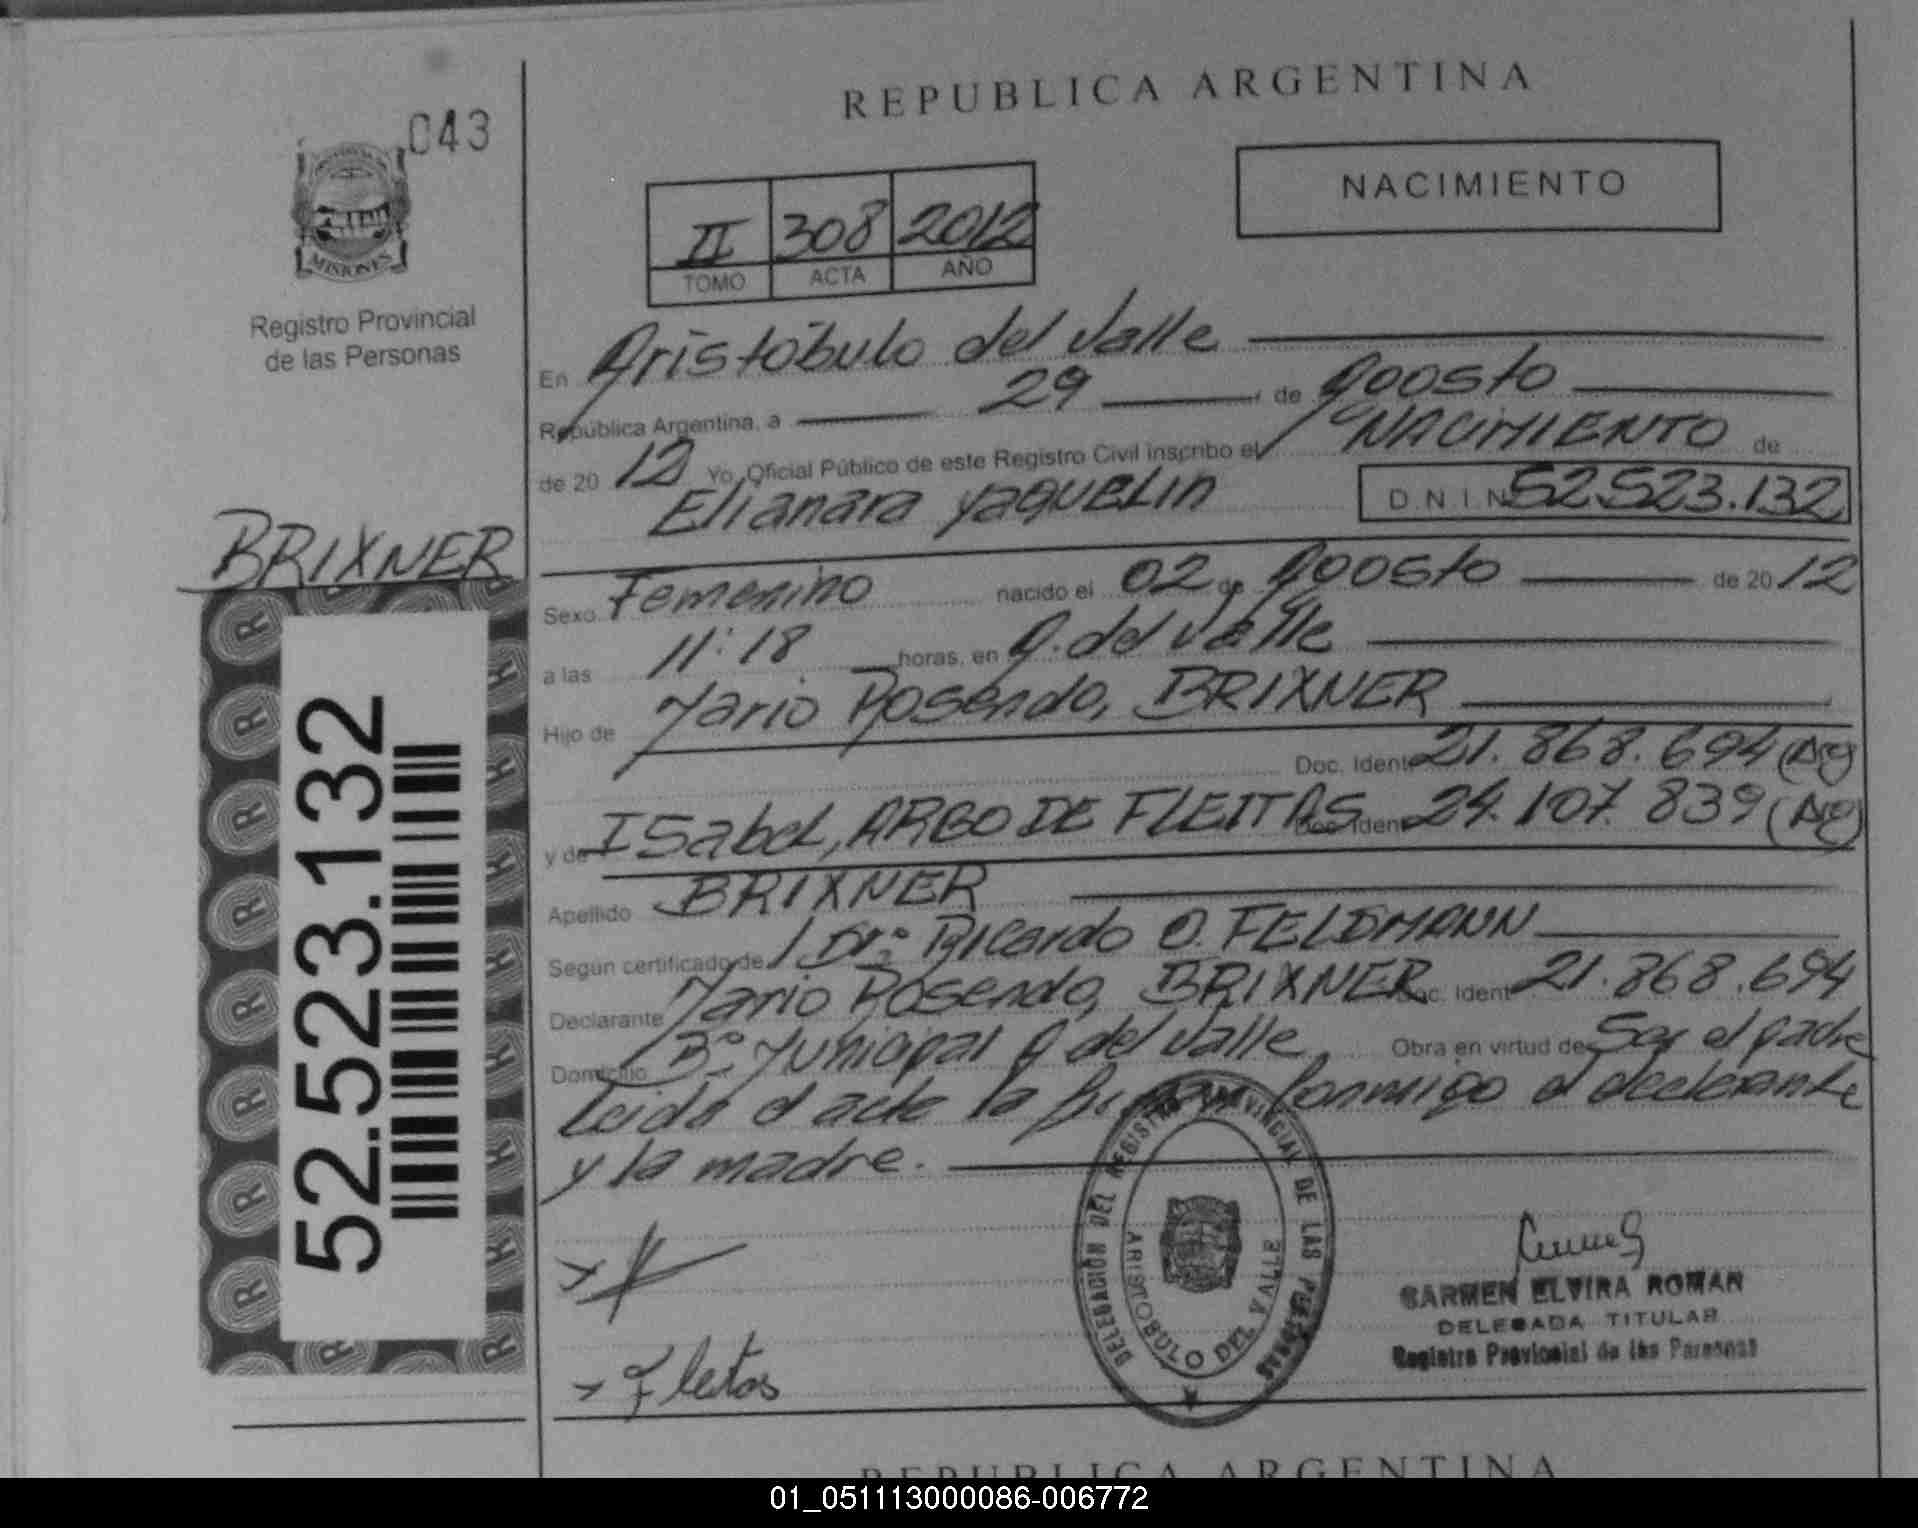 REPUBLICA ARGENTINA
043
NACIMIENTO
II 308 2012
TOMO ACTA AÑO
MISIONES
Registro Provincial
de las Personas
En Aristóbulo del Valle
República Argentina, a 29 de Agosto
de 20 12 Yo, Oficial Público de este Registro Civil inscribo el NACIMIENTO de
Elianara YaquELin D N I N 52.523.132
BRIXNER
Sexo Femenino nacido el 02 de Agosto de 20 12
a las 11:18 horas, en A. del Valle
Hijo de Mario Rosendo, BRIXNER
Doc. Ident 21.868.694 (Ag)
y de Isabel, ARBO DE FLEITAS Doc. Ident 24.107.839 (Ag)
Apellido BRIXNER
Según certificado de Dr: Ricardo O. FELDMANN
Declarante Mario Rosendo, BRIXNER Doc. Ident 21.868.694
Domicilio Bº Municipal A del Valle Obra en virtud de Ser el padre
Leida el acta la firman conmigo el declarante
y la madre.
52.523.132
DELEGACIÓN DEL REGISTRO PROVINCIAL DE LAS PERSONAS
ARISTOBULO DEL VALLE
CARMEN ELVIRA ROMAN
DELEGADA TITULAR
Registro Provincial de las Personas
Fleitas
REPUBLICA ARGENTINA
01_051113000086-006772